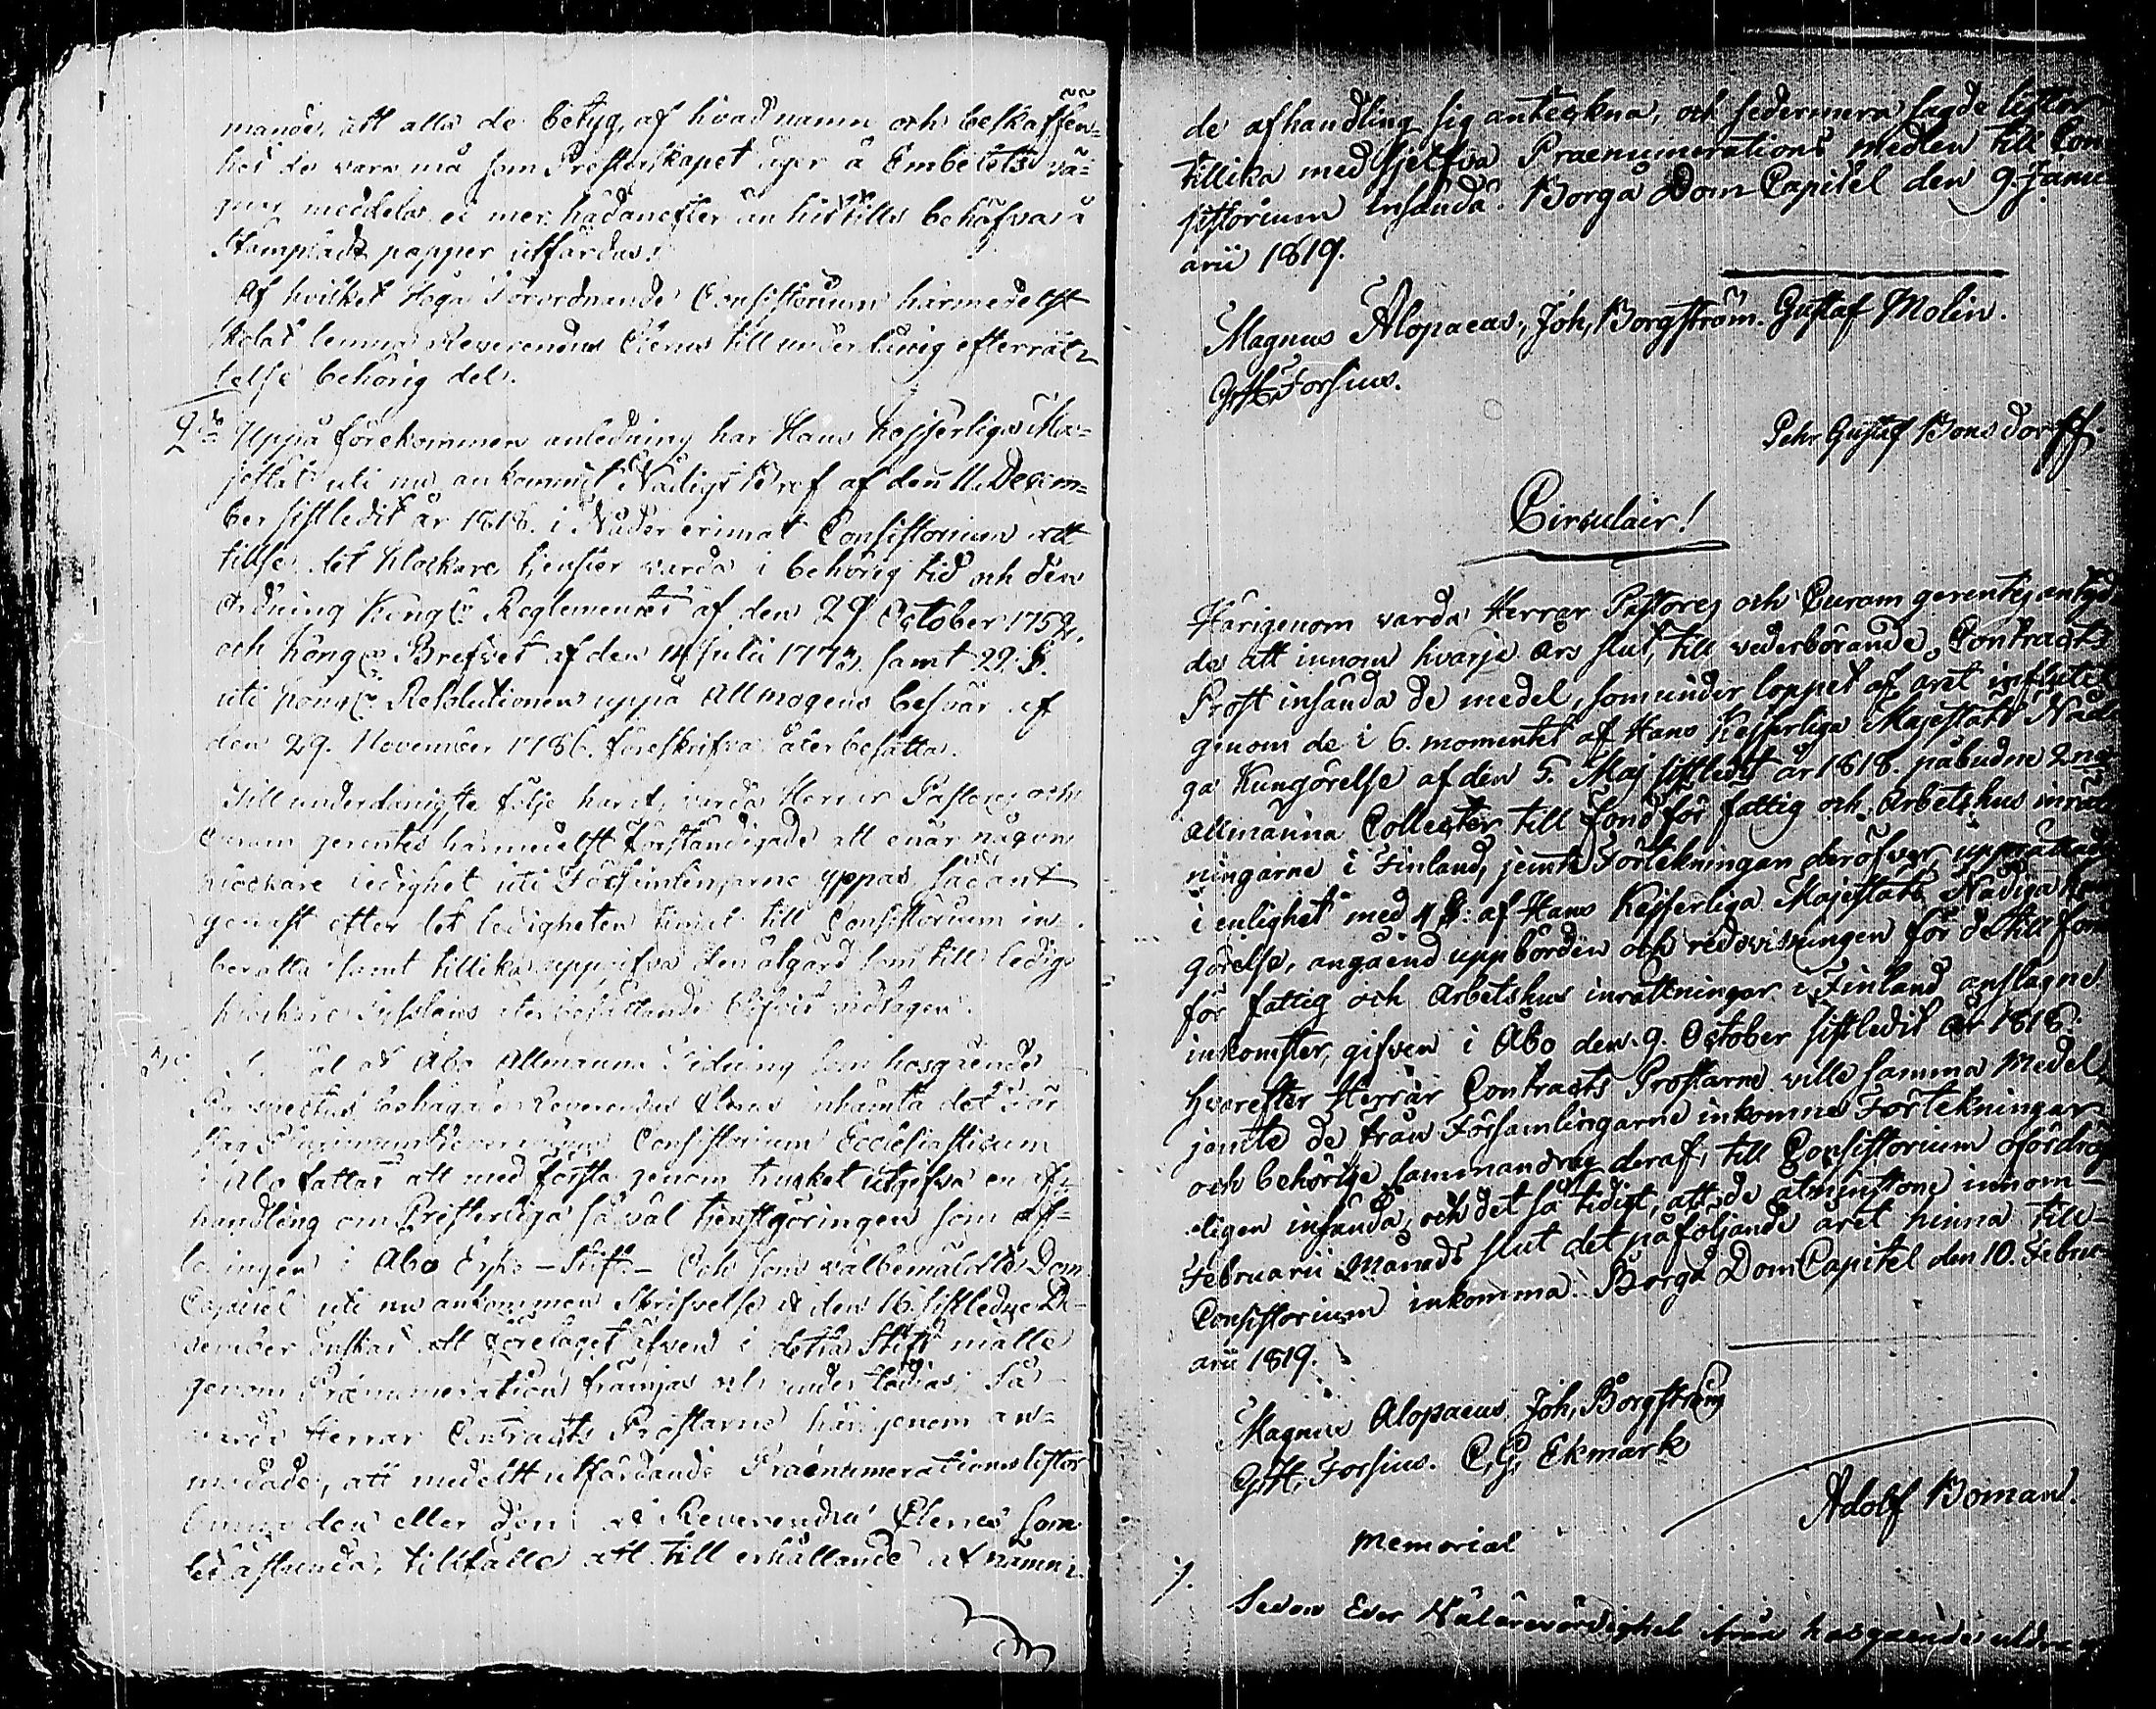 mande, att alla de betyg, af hvad namn och beskaffen=
het de vara må som Presterskapet äger å Embetets vä=
gnar meddela ej mer hädanefter än hittills behöfva å
Stämpladt papper utfärdas.
Af hvilket Höga Förordnande Consistorium härmedelst
skolat lemna Reverendus Clerus till underdånig efterrät=
telse behörig del.
2:do Uppå förekommen anledning har Hans Kejserliga Ma=
jestät uti nu ankommit Nådigt Bref af den 11. Decem=
ber sistledit år 1818. i Nåder erinrat Consistorium att
tillse det Klockare tjenster varda i behörig tid och den
Ordning Kongl. Reglementet af den 29 October 1752,
och Kongl. Brefvet af den 14 Julii 1773. samt 29. §.
uti Kongl. Resolutionen uppå Allmogens besvär af
den 29. November 1786. föreskrifva återbesätta.
Till underdånigste följe häraf, varda Herrar Pastores och
Curam gerentes härmedelst förständigade att enär någon
Klockare ledighet uti Församlingarne yppas sådant
genast efter det ledigheten timat till Consistorium in=
berätta samt tillika uppgifva den åtgärd som till lediga
Klockare Sysslans återbesättande blifvit vidtagen.
3:o Åbo Allmänna Tidning som hosgående
Prospectus behagade Reverendus Clerus inhämta det För
slag Maxime Reverendum Consistorium Ecclesiasticum
i Åbo fattat att med första genom trycket utgifva en af=
handling om Presterliga så väl tjenstgöringen som af=
löningen i Åbo Erke-Stift. Och som välbemälde Dom
Capitel uti nu ankommen Skrifvelse af den 16. sistledne De=
cember önskat att företaget äfven i detta Stift måtte
genom Prænumeration främjas och understödjas; Så
varda Herrar Contracts Prostarne härigenom an=
modade, att medelst utfärdande Prænumerationslistor
lemna den eller dem af Reverendus Clerus som
det åstunda, tillfälle att till erhållande af nämn=
de afhandling sig anteckna, och sedermera sagde listor
tillika med sjelfva Praenumerations medlen till Con
sistorium insända. Borgå Dom Capitel den 9. Janu=
arii 1819.
Magnus Alopaeus, Joh, Borgström. Gustaf Molin.
G. H. Forsius.
Pehr Gustaf Bonsdorff.
Circulair!
Härigenom varda Herrar Pastores och Curam gerentes antyd=
de att innom hvarje års slut, till vederbörande Contracts
Prost insända de medel, som under loppet af året influtit
genom de i 6. momentet af Hans Kejserliga Majestäts Nådi
ga Kungörelse af den 5. Maj sistledit år 1818. påbudne 2ne
allmänna Collecter till fond för fattig och Arbetshus inrätt
ningarne i Finland, jemte Förtekningan deröfver, upprättad
i enlighet med 4 §. af Hans Kejserliga Majestäts Nådiga Kun
görelse, angående uppbörden och redovisningen för de till fond
för fattig och Arbetshus inrättningar i Finland anslagne
inkomster, gifven i Åbo den 9. October sistledit år 1818.
hvarefter Herrar Contracts Prostarne ville samma Medel,
jemte de från Församlingarne inkomne Förtekningar
och behörige sammandrag deraf, till Consistorium ofördröj
ligen insända, och det så tidigt, att de åtminstone innom
Februarii Månads slut det påföljande året hinna till
Consistorium inkomma. Borgå Dom Capitel den 10. Febru=
arii 1819.
Magnus Alopaeus Joh, Borgström
G. H. Forsius. C. G. Ekmark
Adolf Boman.
Memorial
1.
Sedan Eder Välärevördighet hosgående